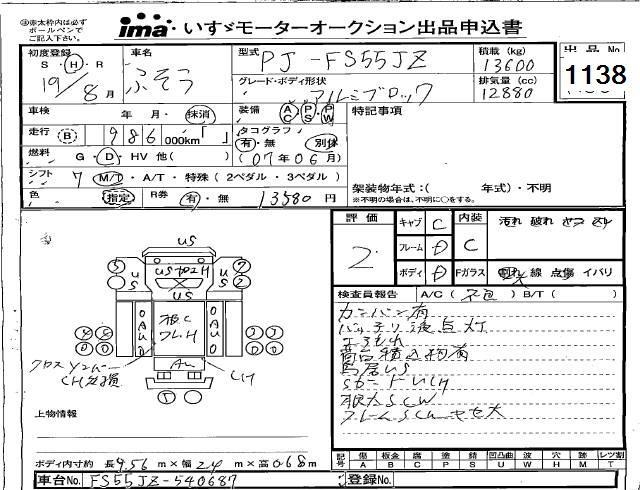 ㊟赤太枠内は必ず
ボールペンで
ご記入下さい。
ima いすゞモーターオークション出品申込書
初度登録
S・H・R
19/8月
車名
ふそう
型式
PJ-FS55JZ
積載 (kg)
13600
出品No
1138
グレード・ボディ形状
アルミブロック
排気量 (cc)
12880
車検 年・月・ 抹消
装備 AC PS PW
特記事項
走行 B 986 000km「 」
タコグラフ
有・無 別体
燃料 G・D・HV 他( )
(07年06月)
シフト 7 M/T・A/T・特殊 (2ペダル・3ペダル)
架装物年式:( 年式)・不明
※不明の場合は、不明に○をする。
色 指定 R券 有・無 13580円
評価
2
キャブ C
フレーム D
ボディ D
内装 C
Fガラス
汚れ 破れ
割れ 線 点傷 イバリ
検査員報告 A/C ( 不包 ) B/T ( )
カンバン有
バッテリ液点灯
高台積込物有
鳥居US
根太SCW
フレームSCWキセ大
US
US
US
OAUD
OAUD
根C
フレH
AU
クロスメンバー
CH
CH
上物情報
ボディ内寸約 長9.56m×幅24m×高068m
車台No. FS55JZ-540687
登録No.
記号
傷 板金 腐 塗 錆 凹凸曲 波 穴 跡 レンズ割
A B C P S U W H M T